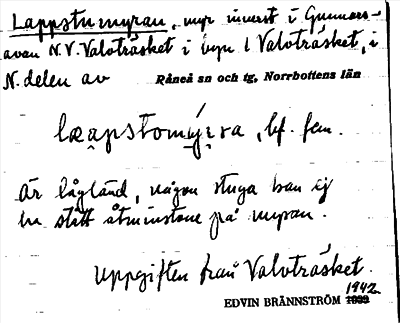 Lappstumyran, myr inerst i Gunnars-
avan N.V. Valvträsket i byn l Valvträsket, i
N. delen av Råneå sn och tg, Norrbottens län
best. fem.
Är lågländ, någon stuga han ej
ha stått åtminstone på myran.
Uppgiften från Valvträsket.
1942
EDVIN BRÄNNSTRÖM 1939